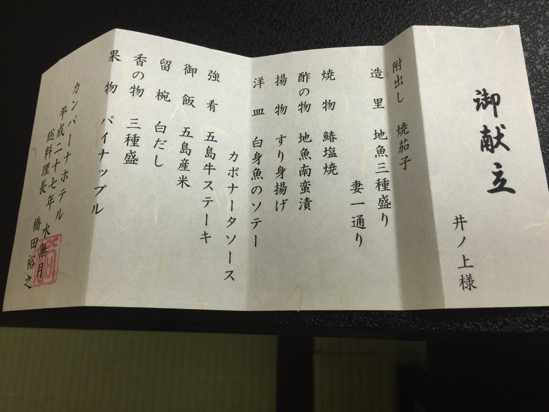 御献立
井ノ上様
附出し 焼茄子
造里 地魚三種盛り
妻一通り
焼物 鰆塩焼
酢の物 地魚南蛮漬
揚物 すり身揚げ
洋皿 白身魚のソテー
カポナータソース
強肴 五島牛ステーキ
御飯 五島産米
留椀 白だし
香の物 三種盛
果物 パイナップル
カンパーナホテル
平成二十七年 水無月
総料理長 橋田裕之